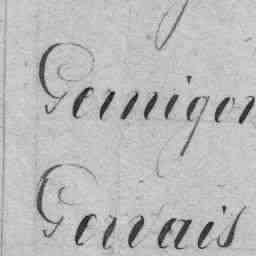 Gernigon
Gervais